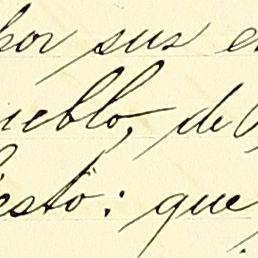 por sus e
ueblo, de
esto: que